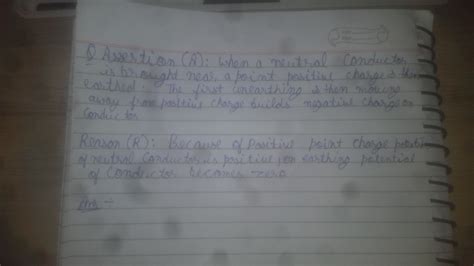 Q Assertion (A): When a neutral Conductor
is brought near a point positive charge is then
earthed. The first unearthing is then moving
away from positive charge builds negative charge on
Conductor
Reason (R): Because of Positive point charge potential
of neutral Conductor is positive earthing potential
of Conductor becomes zero
Ans :-